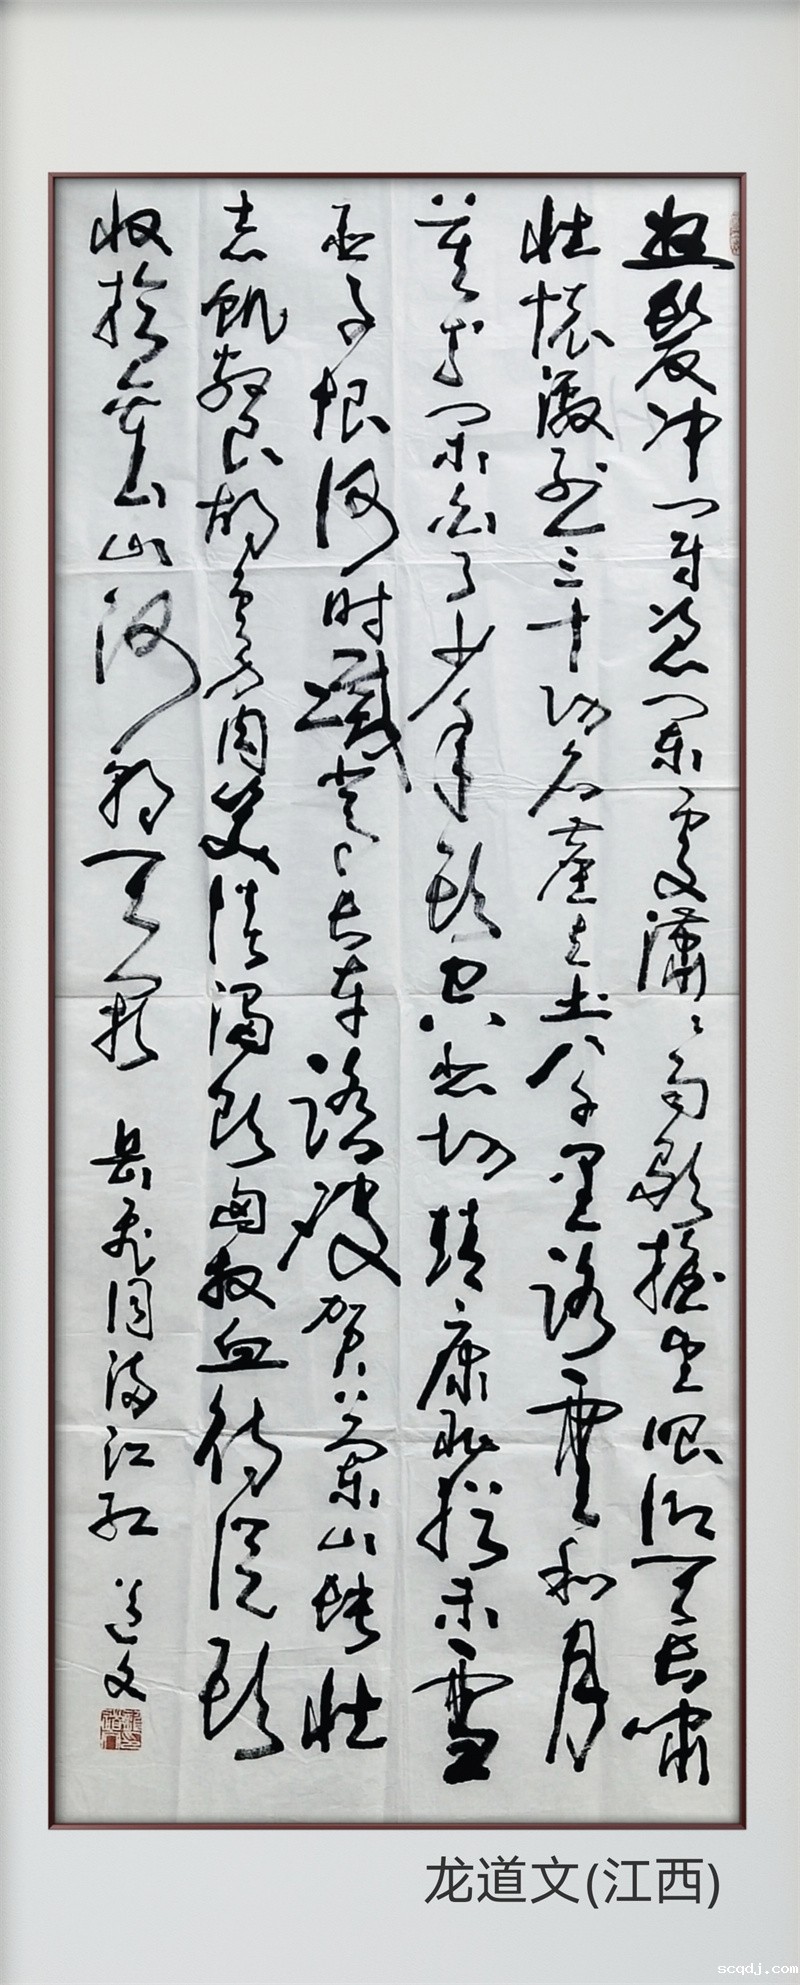 怒髮冲冠凭阑處潇〻雨歇抬望眼仰天長啸
壮懷激烈三十功名塵与土八千里路雲和月
莫等闲白了少年头空悲切靖康耻猶未雪
臣子恨何时滅驾長车踏破贺兰山缺壮
志飢餐胡虏肉笑谈渴饮匈奴血待從头
收拾舊山河朝天阙 岳飞词满江红 道文
龙道文(江西)
scqdj.com